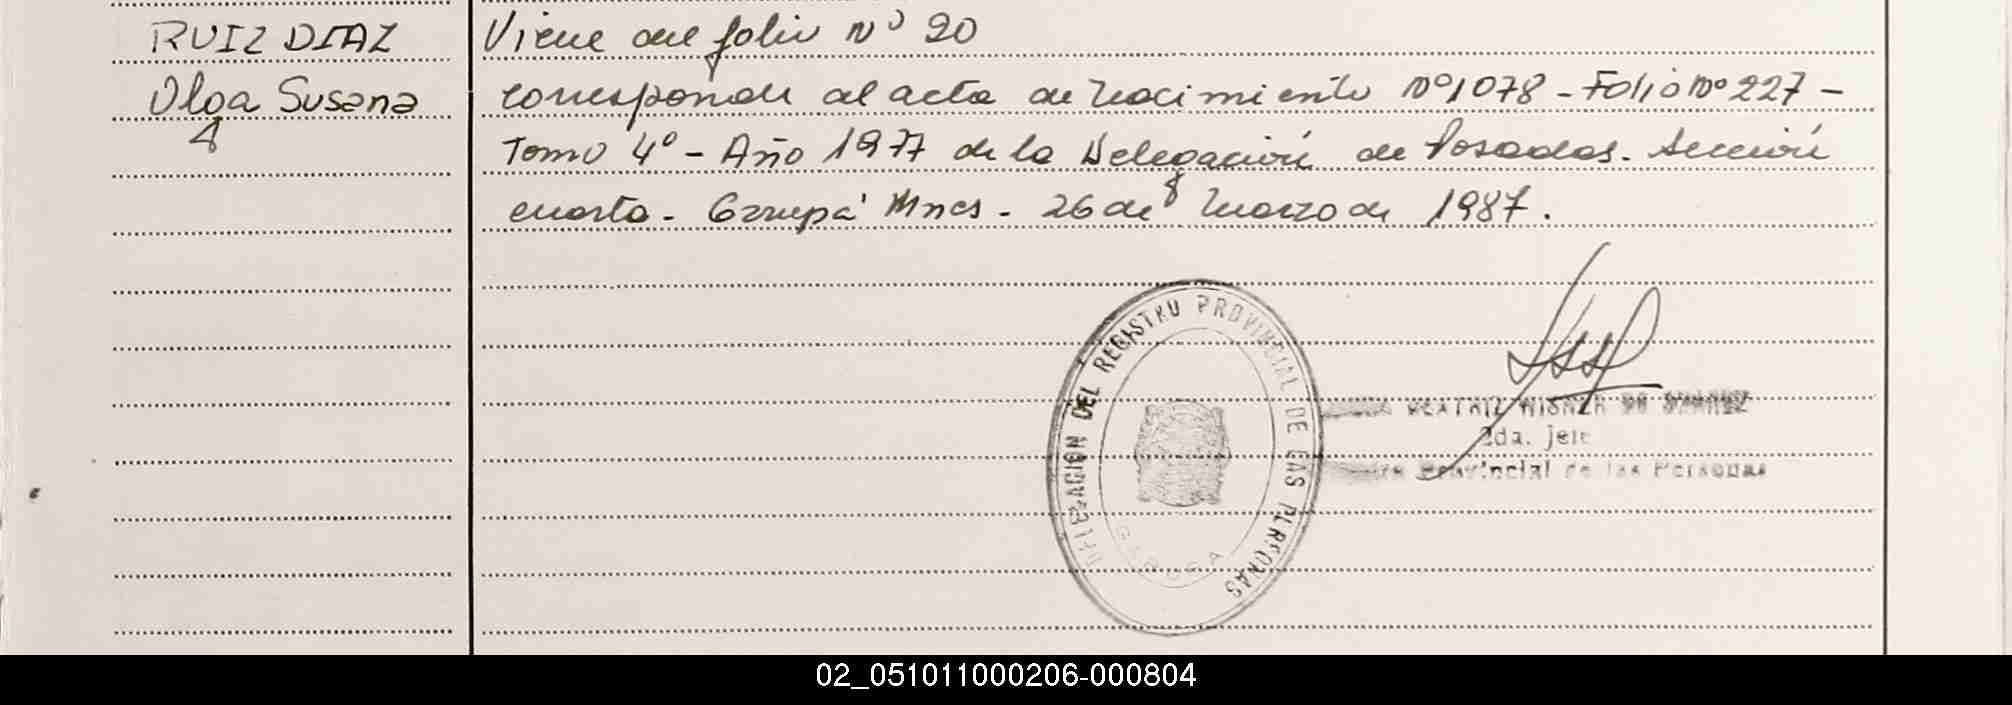 RUIZ DIAZ
Olga Susana
Viene del folio Nº 20
corresponde al acta de nacimiento Nº 1078 - Folio Nº 227 -
Tomo 4º - Año 1977 de la Delegación de Posadas. Sección
cuarta. Garupá Mnes. 26 de Marzo de 1987.
DELEGACION DEL REGISTRO PROVINCIAL DE LAS PERSONAS
GARUPA
BEATRIZ DE
2da. jefe
Provincial de las Personas
02_051011000206-000804